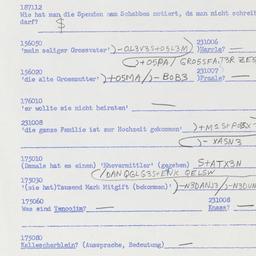 187112
Wie hat man die Spenden am Schabbes notiert, da man nicht schreib
darf? $
156050 231006
'mein seliger Grossvater' )-OL3V3S+O5L3M) )Harrle? —
)+O5PA/ GROSSFA.T3R ZE3
156020 231007
'die alte Grossmutter' )+O5MA/)-BOB3 )Fraale? —
176010
'er wollte sie nicht heiraten' —
231008
'die ganze Familie ist zur Hochzeit gekommen'
)-XASN3
173010
(Damals hat es einen) 'Ehevermittler' (gegeben) S+ATX3N
173030
'(sie hat)Tausend Mark Mitgift (bekommen)' )-N3DANJ3/)-N3DUN
173060 231008
Was sind Tenoojim? — Knass? —
173080
Kallescherblein? (Aussprache, Bedeutung) —